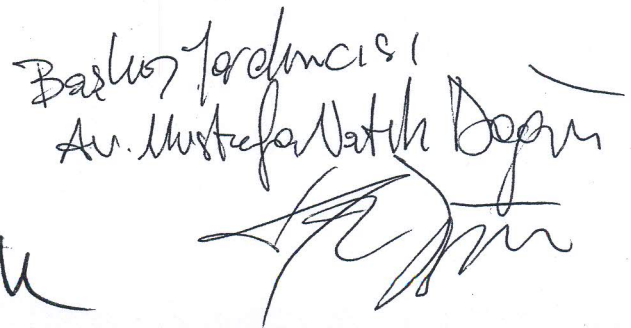 Başkan Yardımcısı
Av. Mustafa Natık